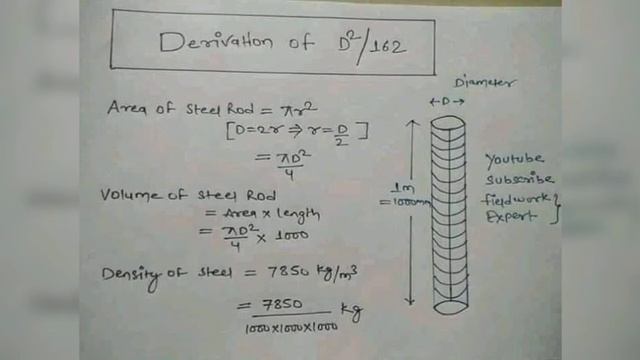 Derivation of D²/162
Area of Steel Rod = πr²
[D=2r ⇒ r=D/2]
= πD²/4
Volume of Steel Rod
= Area x length
= πD²/4 x 1000
Density of steel = 7850 kg/m³
= 7850/1000x1000x1000 kg
Diameter
←D→
1m
=1000mm
Youtube
Subscribe
fieldwork
Expert